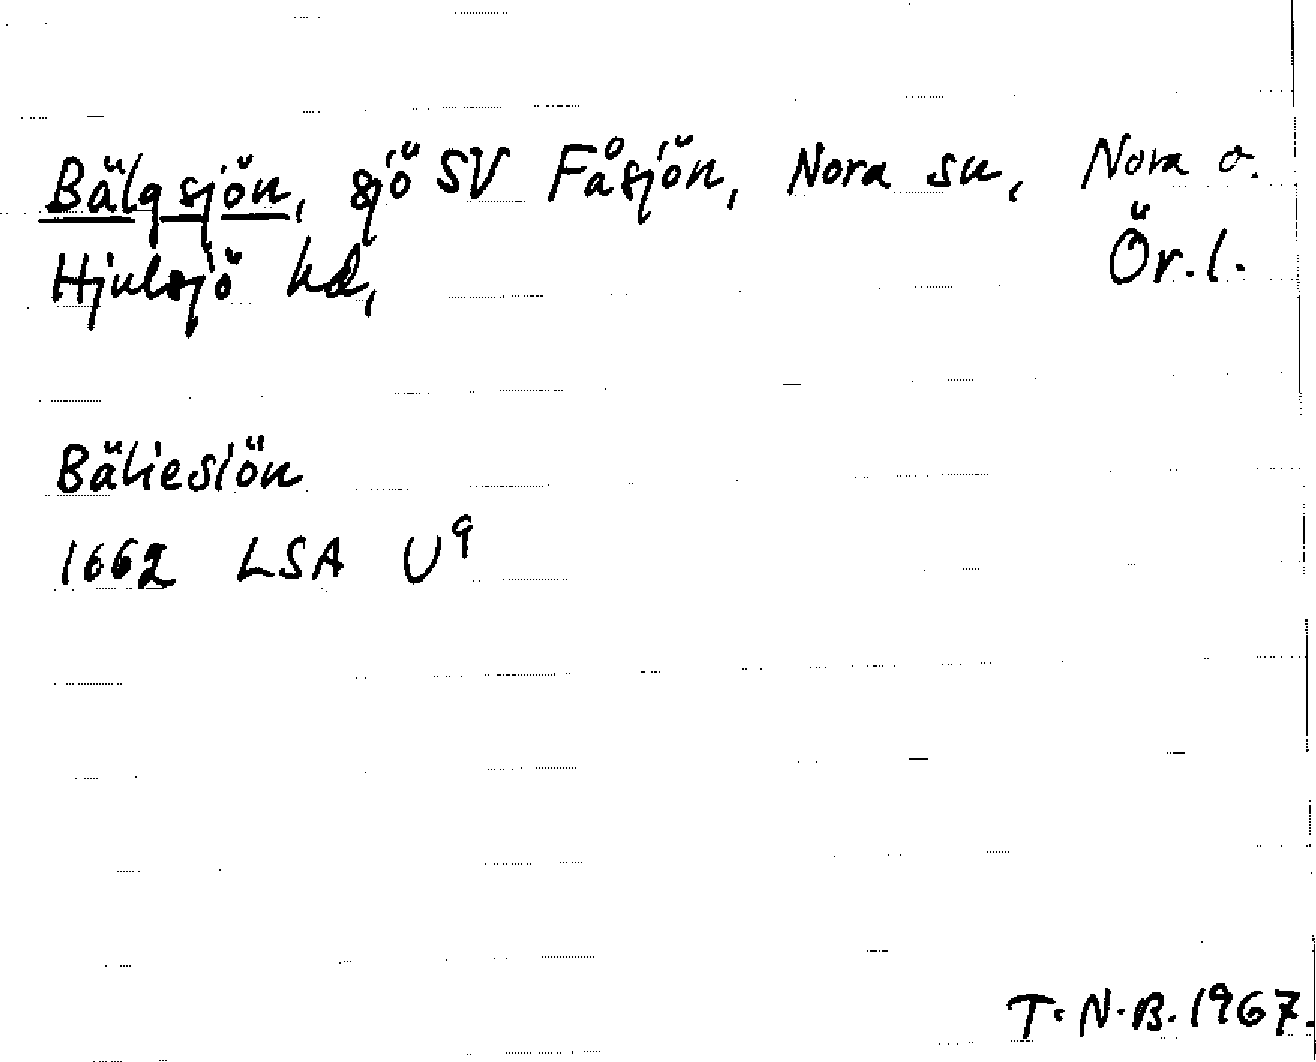 Bälgsjön, sjö SV Fåsjön, Nora sn, Nora o.
Hjulsjö hd, Ör.l.
Bäliesiön
1662 LSA U9
T.N.B. 1967.